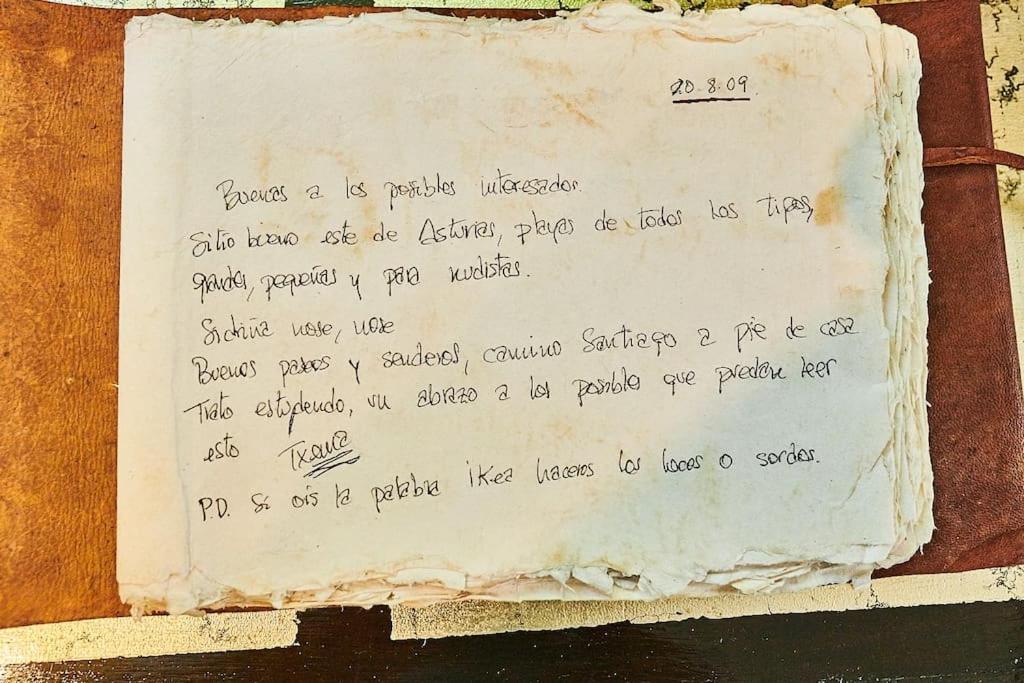 20-8-09.
Buenas a los posibles interesados.
Sitio bueno este de Asturias, playas de todos los tipos,
grandes, pequeñas y para nudistas.
nose, nose
Buenos paseos y senderos, camino Santiago a pie de casa
Trato estupendo, un abrazo a los posibles que puedan leer
esto Txema
P.D. Si ois la palabra ikea haceros los locos o sordos.